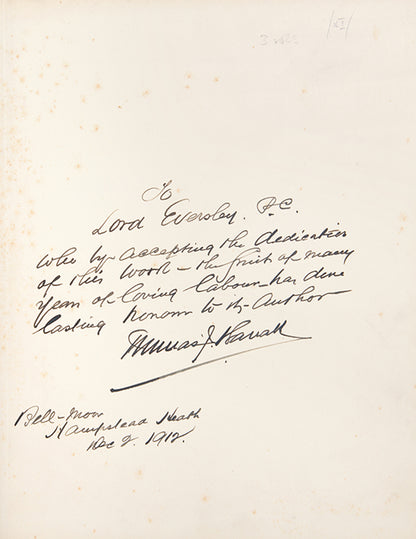 3 vols
To
Lord Eversley. P.C.
who by accepting the dedication
of this work - the fruit of many
years of loving labour - has done
lasting honour to its Author
Thomas J. Barratt
Bell-Moor
Hampstead Heath
Dec 2. 1912.